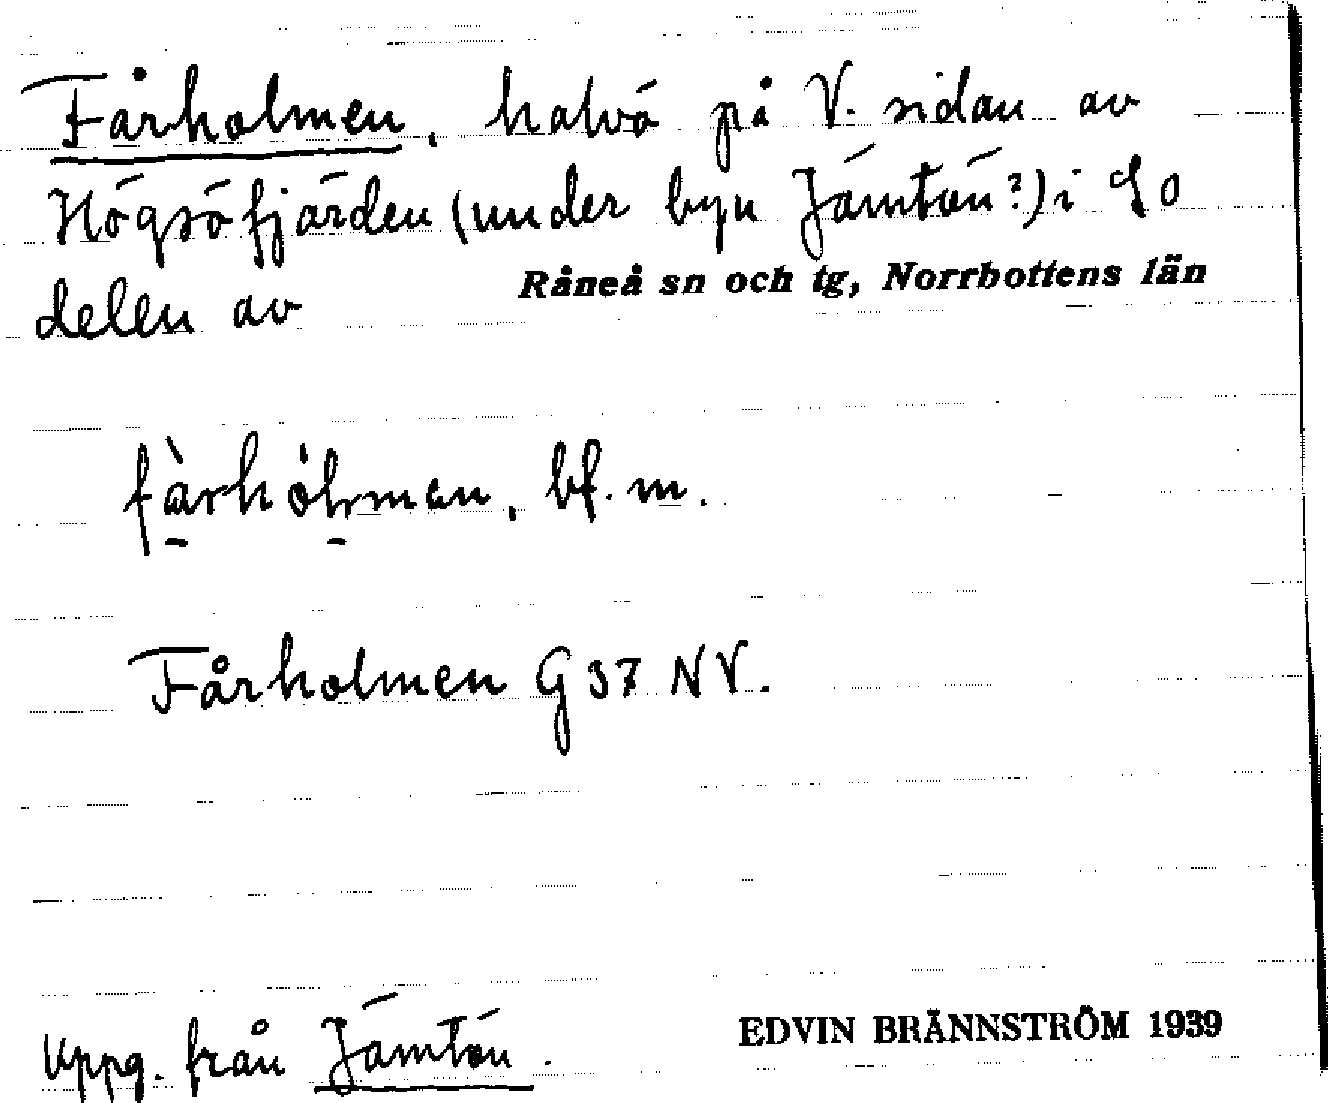 Fårholmen, halvö på V. sidan av
Högsöfjärden (under byn Jämtön?) i SO
delen av Råneå sn och tg, Norrbottens län
fàrhòlman, bf. m.
Fårholmen G 37 NV.
Uppg. från Jämtön.
EDVIN BRÄNNSTRÖM 1939